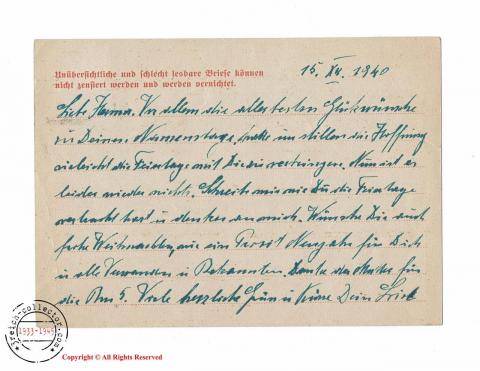 Unübersichtliche und schlecht lesbare Briefe können
nicht zensiert werden und werden vernichtet.
15. XII. 1940
Liebe Hanna. Vor allem die allerbesten Glückwünsche
zu Deinem Namenstage, hatte im stillen die Hoffnung
vieleicht die Feiertage mit Dir zu verbringen. Nun ist es
leider wieder nichts. Schreib mir wie Du die Feiertage
verbracht hast u denkst an mich. Wünsche Dir auch
frohe Weihnachten, wie ein Prosit Neujahr für Dich
u alle Verwandten u Bekannten. Danke der Mutter für
die Rm 5. Viele herzliche Grüße u Küsse Dein
3reich-collector.com
1933-1945
Copyright © All Rights Reserved